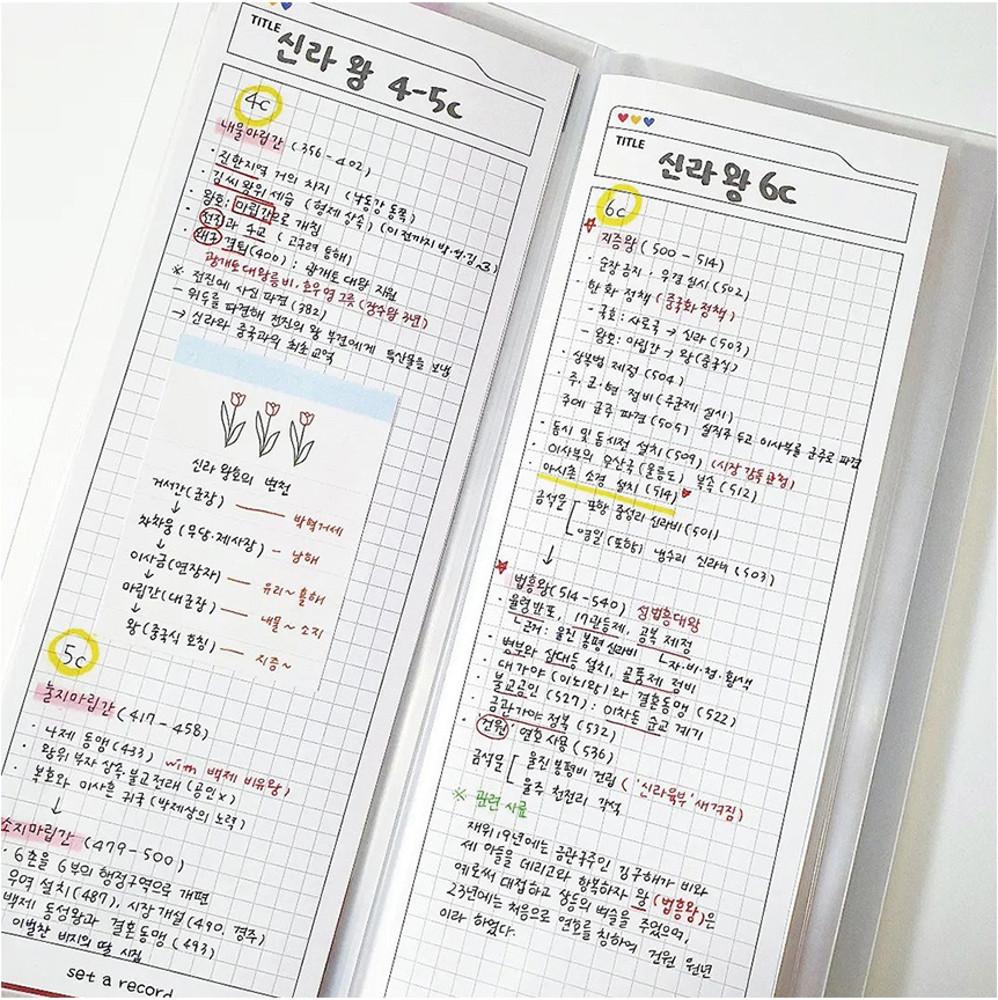 TITLE
신라 왕 4-5c
4c
내물마립간 (356-402)
· 진한지역 거의 차지 (낙동강 동쪽)
· 김씨 왕위 세습 (형제 상속) (이전까지 박·석·김 교대)
· 왕호: 마립간으로 개칭
· 전진과 수교 (고구려 통해)
· 왜구 격퇴(400) : 광개토 대왕 지원
광개토대왕릉비·호우명 그릇 (장수왕 3년)
※ 전진에 사신 파견 (382)
- 위두를 파견해 전진의 왕 부견에게 특산물을 보냄
→ 신라와 중국과의 최초 교역
신라 왕호의 변천
거서간(군장) — 박혁거세
↓
차차웅 (무당·제사장) - 남해
↓
이사금(연장자) — 유리~흘해
↓
마립간(대군장) — 내물~소지
↓
왕(중국식 호칭) — 지증~
5c
눌지마립간(417-458)
· 나제 동맹(433) with 백제 비유왕
· 왕위 부자 상속, 불교전래 (공인x)
· 복호와 미사흔 귀국(박제상의 노력)
↓
소지마립간 (479-500)
· 6촌을 6부의 행정구역으로 개편
우역 설치(487), 시장 개설(490, 경주)
백제 동성왕과 결혼동맹 (493)
이벌찬 비지의 딸 시집
set a record
TITLE
신라 왕 6c
6c
지증왕 (500-514)
· 순장 금지 · 우경 실시 (502)
· 한화 정책 (중국화 정책)
- 국호: 사로국 → 신라 (503)
- 왕호: 마립간 → 왕(중국식)
· 상복법 제정 (504)
· 주·군·현 정비 (주군제 실시)
주에 군주 파견(505) 실직주 두고 이사부를 군주로 파견
· 동시 및 동시전 설치(509) (시장 감독 관청)
· 이사부의 우산국(울릉도) 복속 (512)
· 아시촌 소경 설치 (514)
금석문 [ 포항 중성리 신라비(501)
영일(포항) 냉수리 신라비 (503)
↓
법흥왕(514-540) 성법흥대왕
· 율령반포, 17관등제, 공복 제정
ㄴ근거: 울진 봉평 신라비 ㄴ자·비·청·황색
· 병부와 상대등 설치, 골품제 정비
· 대가야 (이뇌왕)와 결혼동맹 (522)
· 불교공인 (527) : 이차돈 순교 계기
· 금관가야 정복 (532)
· '건원' 연호 사용 (536)
금석문 [ 울진 봉평비 건립 ('신라육부' 새겨짐)
울주 천전리 각석
※ 관련 사료
재위 19년에는 금관국주인 김구해가 비와
세 아들을 데리고와 항복하자 왕(법흥왕)은
예로써 대접하고 상등의 벼슬을 주었으며,
23년에는 처음으로 연호를 칭하여 건원 원년
이라 하였다.